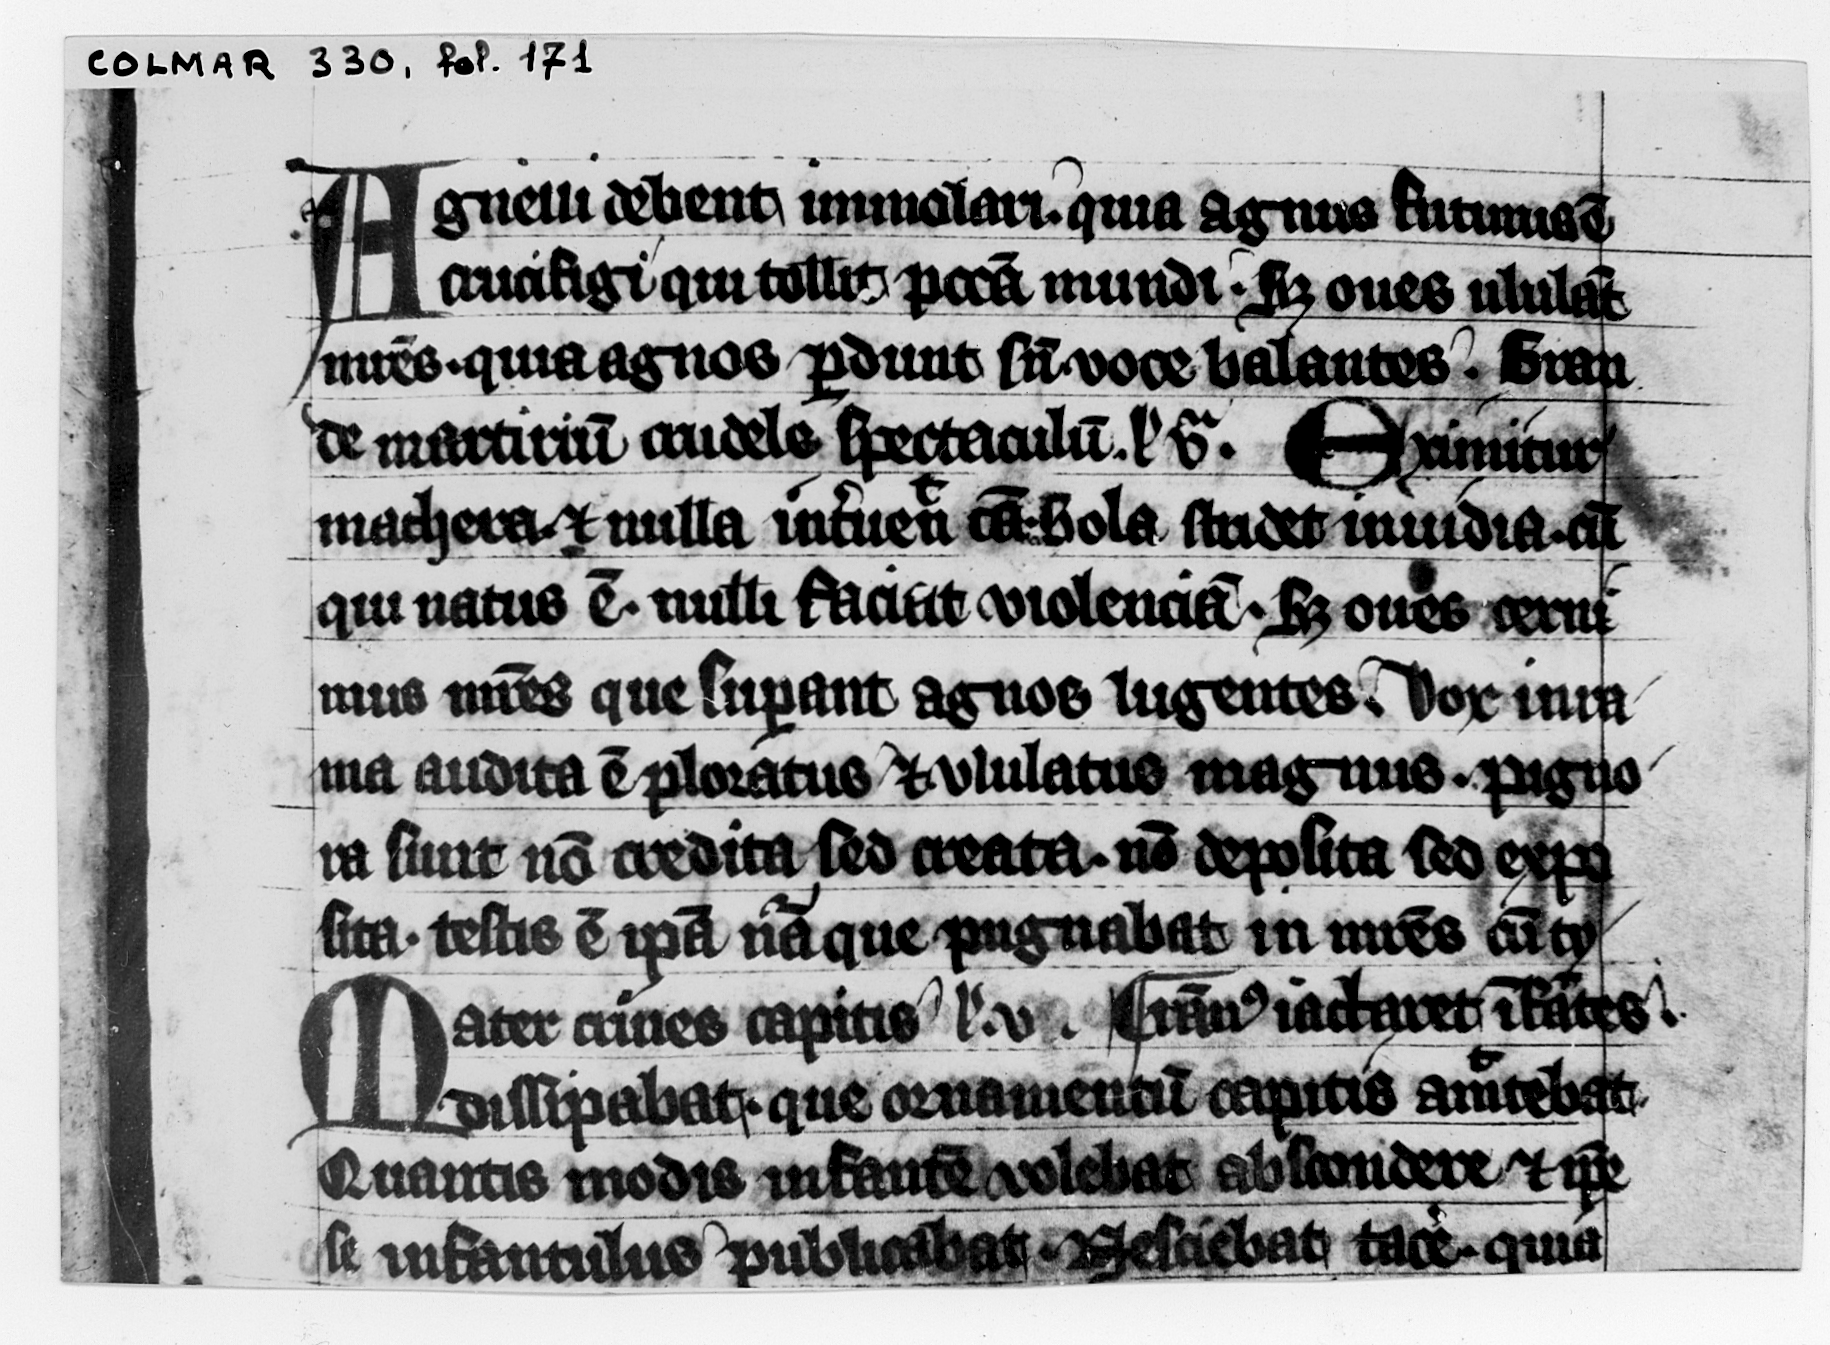 COLMAR 330, fol. 171
Agnelli debent immolari. quia agnus futurus ē
crucifigi qui tollit pccā mundi. Sꝫ oues ululāt
mr̄es. quia agnos ꝑdunt sn̄ voce balantes. Gran
de martiriū crudele spectaculū. Eximitur
machera. ⁊ nulla cā. Sola studet inuidia. cū
qui natus ē. nulli faciat violenciā. Sꝫ oues cerni
mus mr̄es que suꝑant agnos lugentes. Vox in ra
ma audita ē ploratus ⁊ vlulatus magnus. pigno
ra sunt nō credita sed creata. nō deposita sed expo
sita. testis ē ip̄a nā que pugnabat in mr̄es cū ty
Mater crines capitis l. v. iactaret
dissipabat. que ornamentū capitis amͭtebat.
Quantis modis infantē volebat abscondere ⁊ ip̄e
se infantulus publicabat. Nesciebat tace. quia